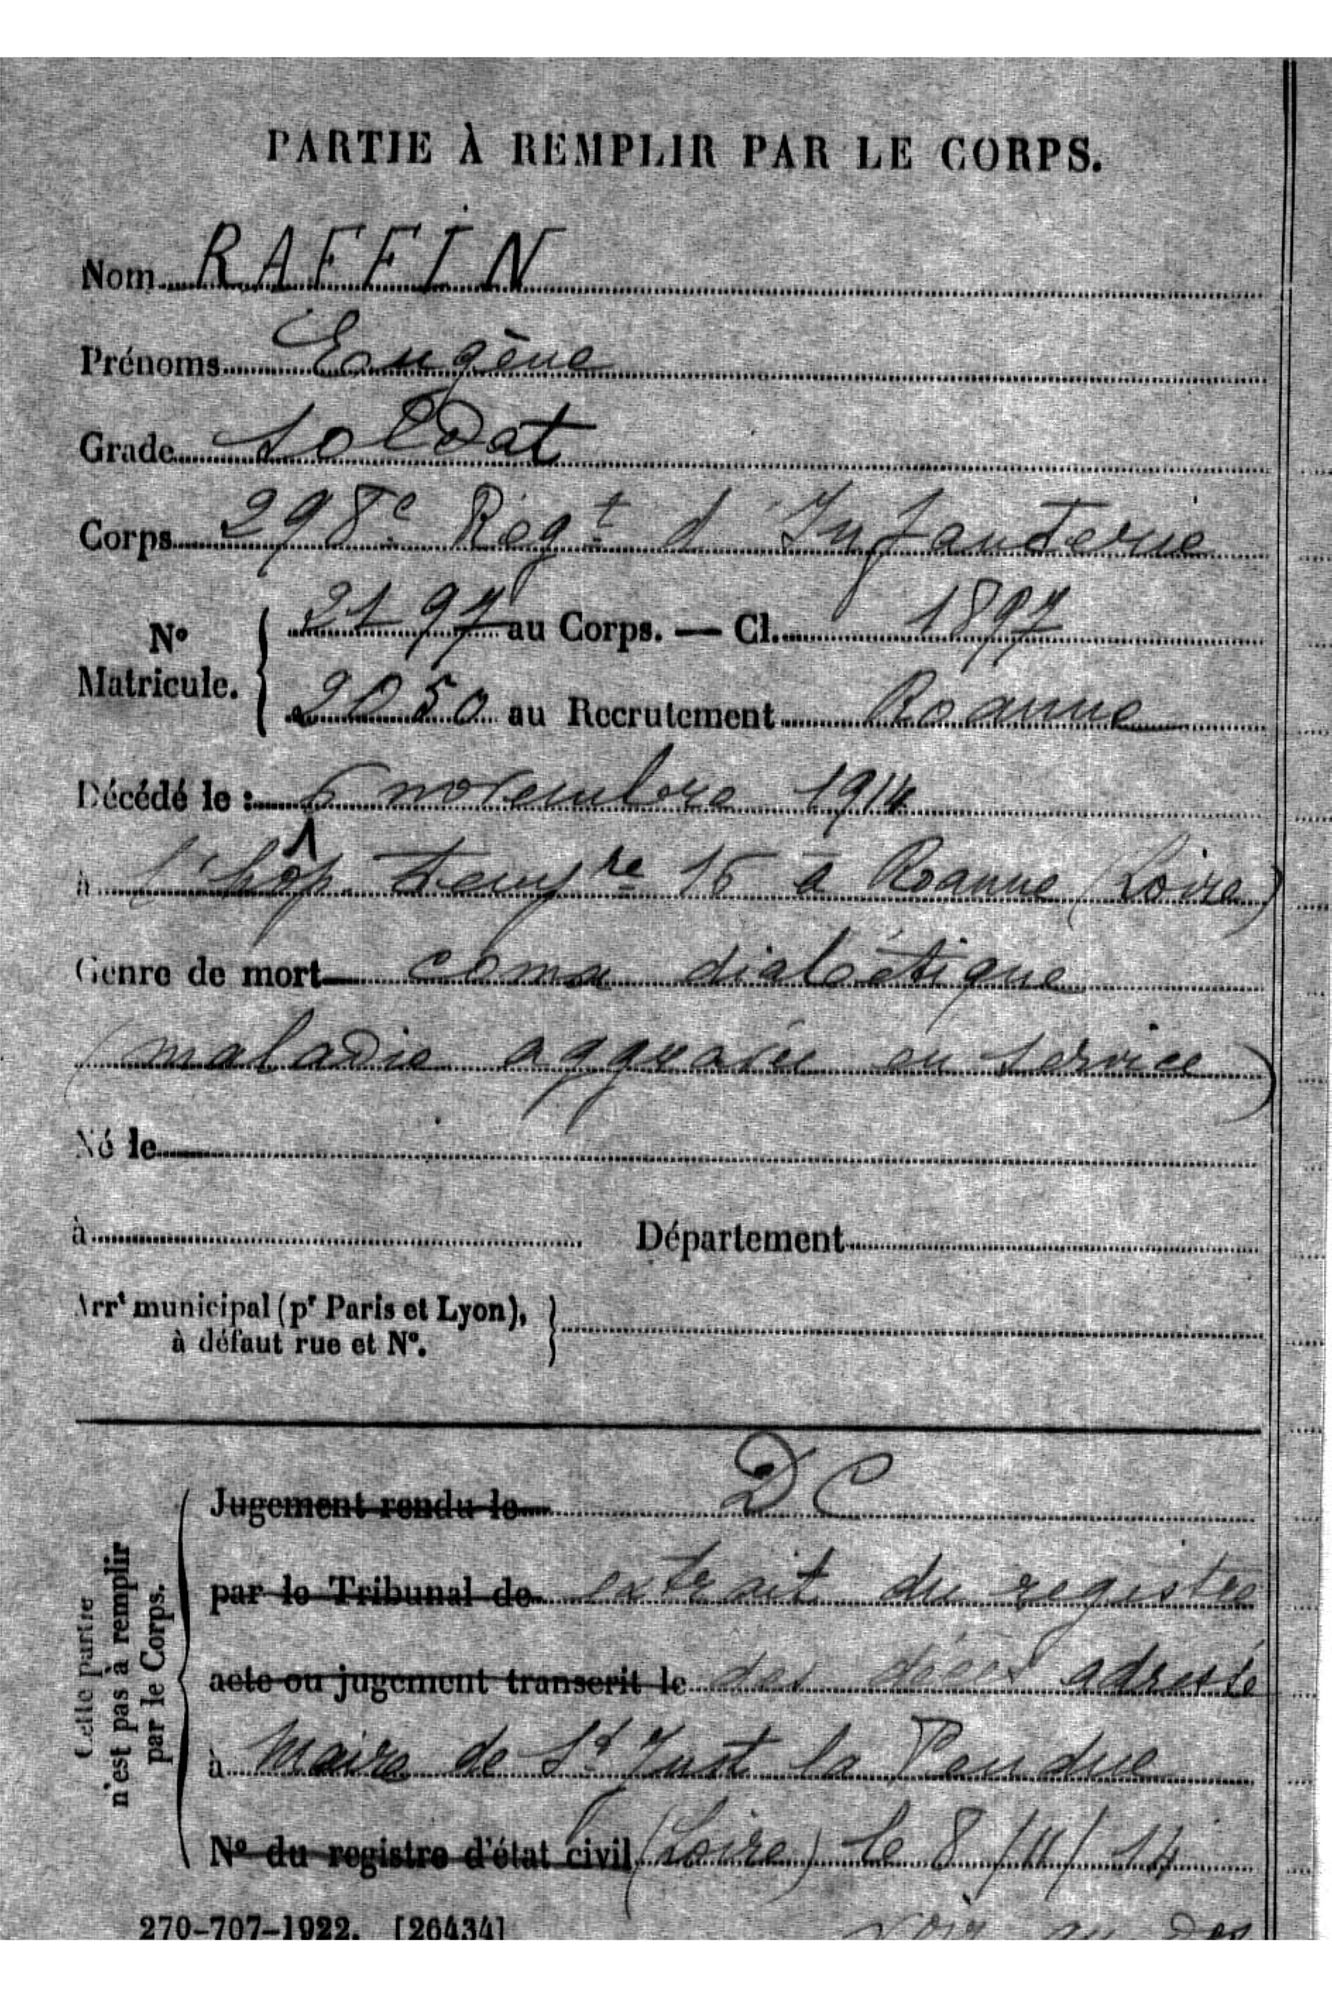 PARTIE À REMPLIR PAR LE CORPS.
Nom RAFFIN
Prénoms Eugène
Grade soldat
Corps 298e Régt d'Infanterie
N° Matricule. 2197 au Corps. — Cl. 1897
2050 au Recrutement Roanne
Décédé le : 6 novembre 1914
à l'hôp. tempre 15 à Roanne (Loire)
Genre de mort coma diabétique
(maladie aggravée en service)
Né le
à Département
Arrt municipal (pr Paris et Lyon),
à défaut rue et N°.
Cette partie
n'est pas à remplir
par le Corps.
Jugement rendu le DC
par le Tribunal de extrait du registre
acte ou jugement transcrit le des décès adressé
à Maire de St Just la Pendue
N° du registre d'état civil (Loire) le 8/11/14
voir au dos
270-707-1922. [26434]